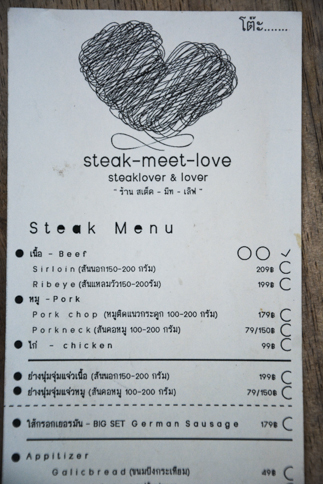 โต๊ะ.......
steak-meet-love
steaklover & lover
" ร้าน สเต็ค - มีท - เลิฟ "
Steak Menu
เนื้อ - Beef
Sirloin (สันนอก150-200 กรัม) 209฿
Ribeye (สันแหลมวัว150-200รัม) 199฿
หมู - Pork
Pork chop (หมูติดแนวกระดูก 100-200 กรัม) 179฿
Porkneck (สันคอหมู 100-200 กรัม) 79/150฿
ไก่ - chicken 99฿
ย่างนุ่มจุ่มแจ่วเนื้อ (สันนอก150-200 กรัม) 199฿
ย่างนุ่มจุ่มแจ่วหมู (สันคอหมู 100-200 กรัม) 79/150฿
ไส้กรอกเยอรมัน - BIG SET German Sausage 179฿
Appitizer
Galicbread (ขนมปังกระเทียม) 49฿